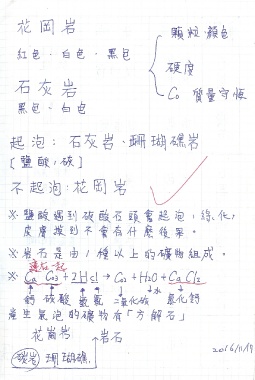 花岡岩
顆粒.顏色
紅色、白色、黑色
硬度
石灰岩
Co 質量守恆
黑色、白色
起泡:石灰岩、珊瑚礁岩
[鹽酸,碳]
不起泡:花岡岩
※鹽酸遇到碳酸石頭會起泡,
皮膚 不會有什麼後果。
※岩石是由1種以上的礦物組成。
※ Ca Co3 + 2Hcl → Co2 + H2O + Ca Cl2
鈣 碳酸 氫氯 二氧化碳 水 氯化鈣
產生氣泡的礦物有「方解石」
花崗岩 岩石
珊瑚礁
2016/11/17